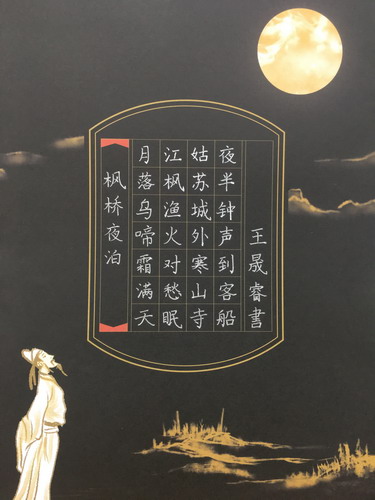 枫桥夜泊
月落乌啼霜满天
江枫渔火对愁眠
姑苏城外寒山寺
夜半钟声到客船
王晟睿書